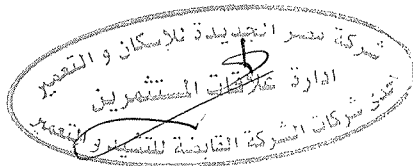 شركة مصر الجديدة للاسكان و التعمير
ادارة علاقات المستثمرين
احدى شركات الشركة القابضة للتشييد و التعمير